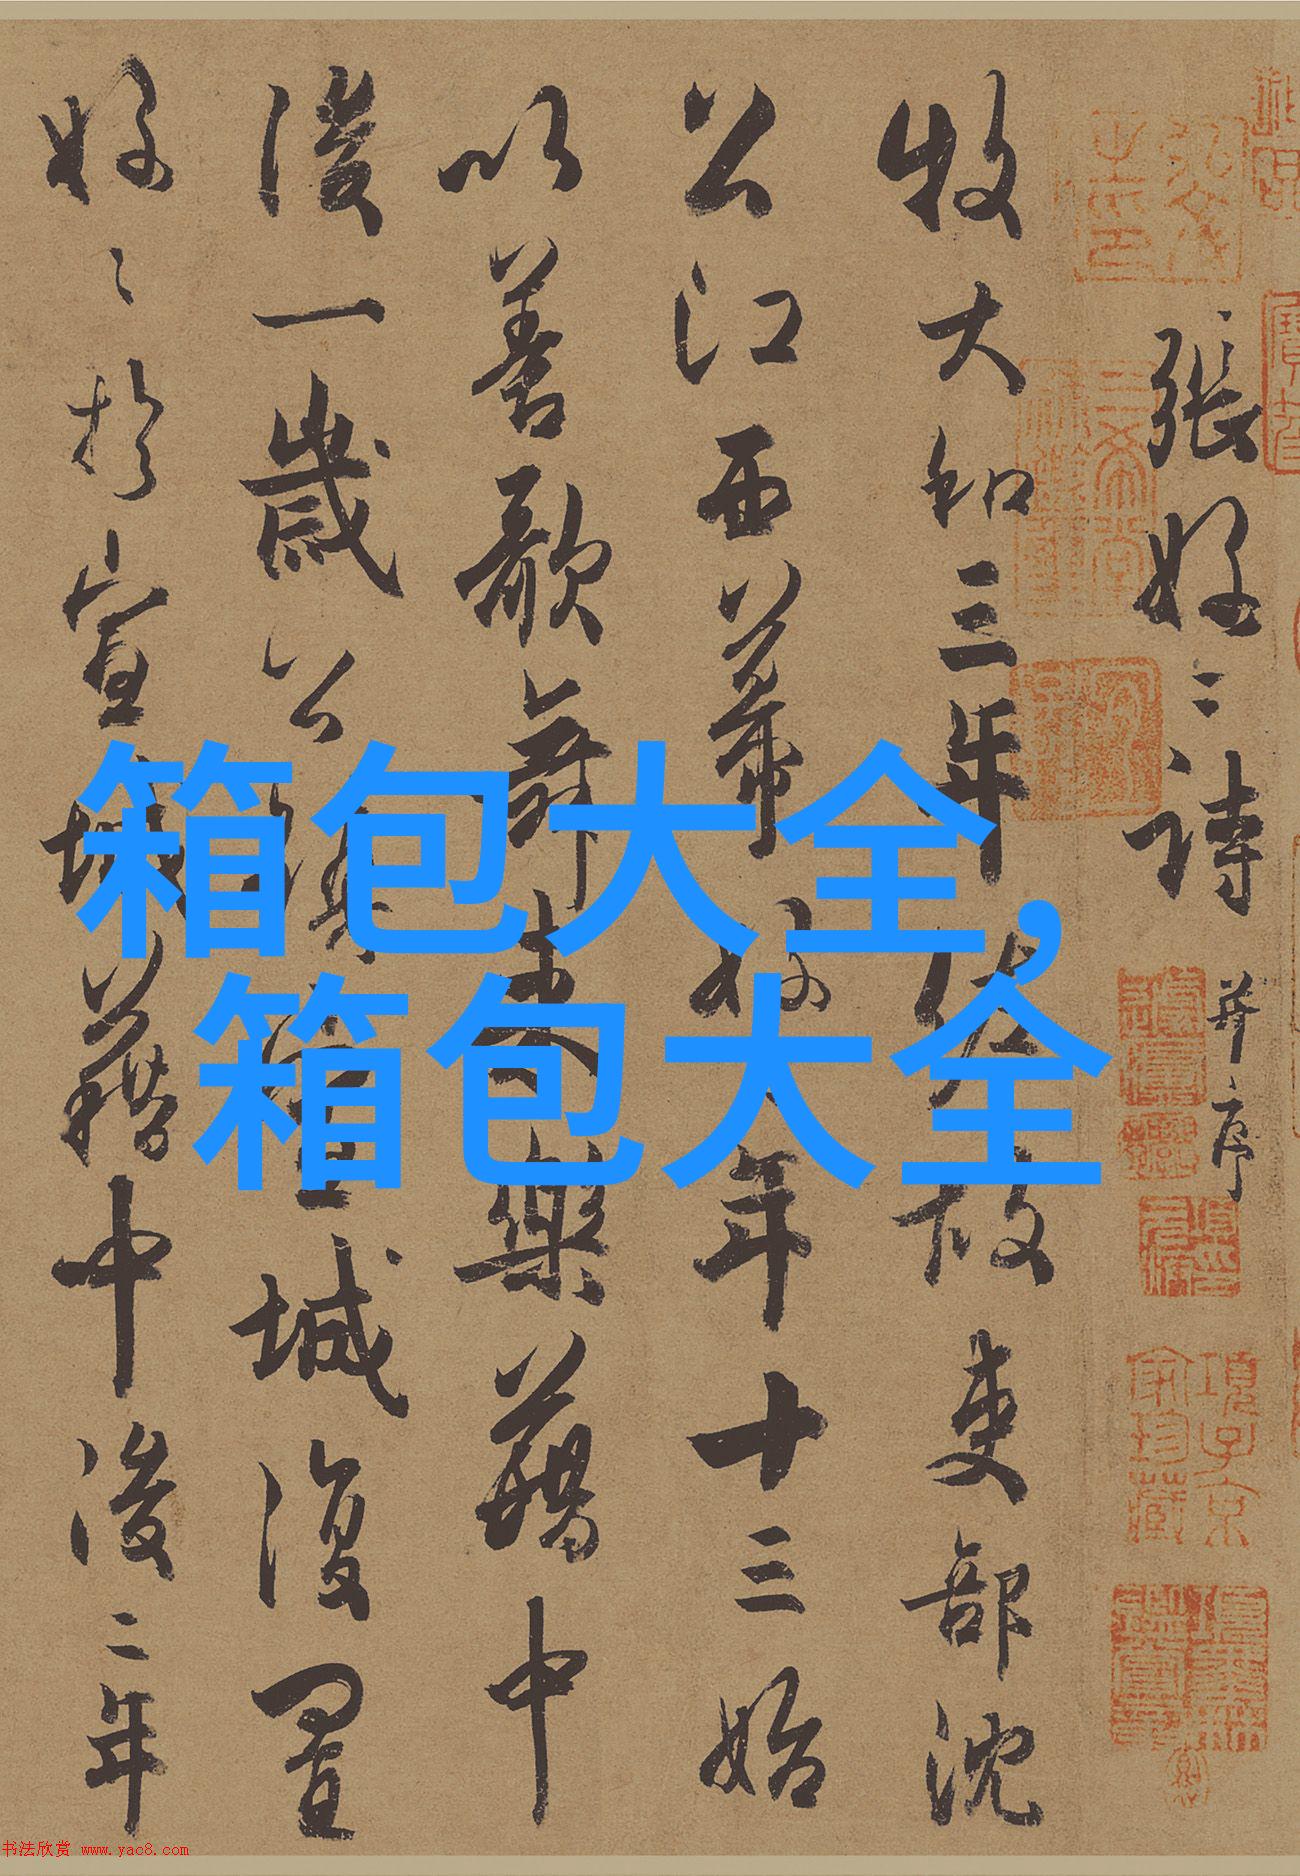 張好〻詩 并序
牧大和三年佐故吏部沈
公江西幕好年十三始
以善歌舞来樂籍中
後一歳公鎮宣城復置
好〻於宣城籍中後二年
箱包大全,
箱包大全
項子京家珍藏
书法欣赏 www.yac8.com